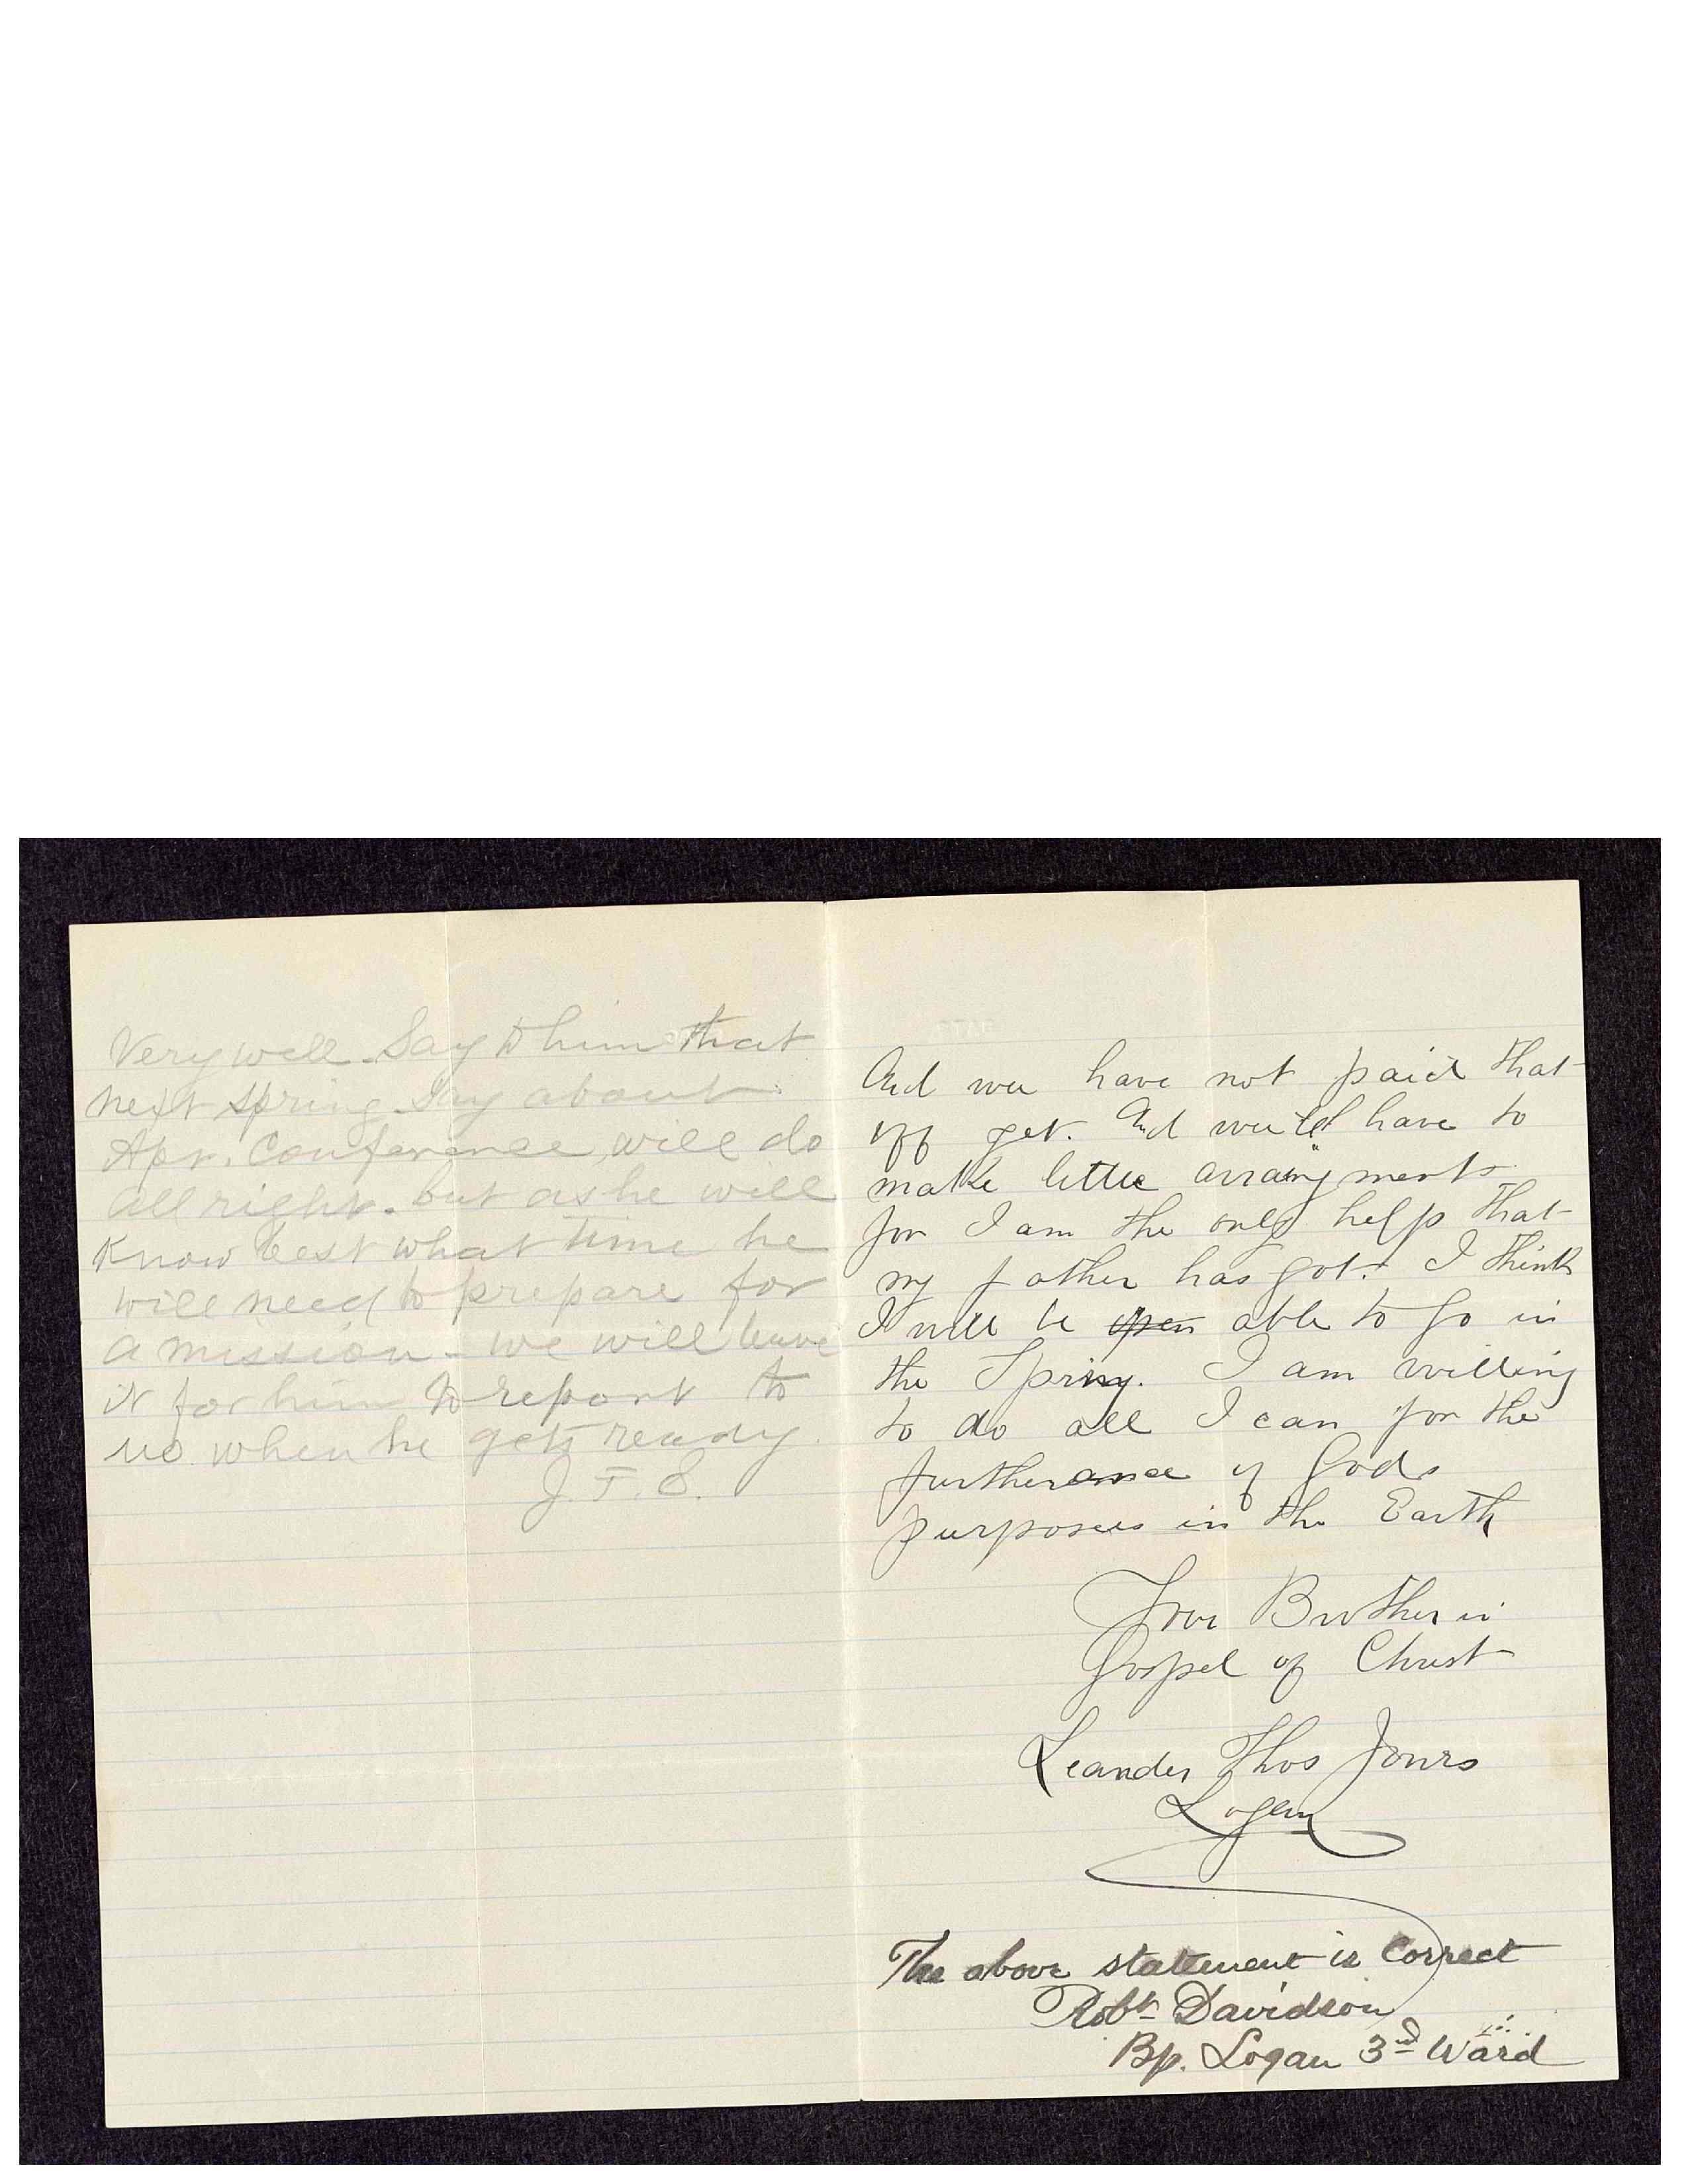 Very well. Say to him that
next spring say about
Apr. Conference, will do
all right. but as he will
know best what time he
will need to prepare for
a mission - we will leave
it for him to report to
us when he gets ready.
J. F. S.
And we have not paid that
off yet. And would have to
make little arraingments
for I am the only help that
my father has got. I think
I will be able to go in
the Spring. I am willing
to do all I can for the
furtherance of Gods
purposes in the Earth
Your Brother in
Gospel of Christ
Leander Thos Jones
Logan
The above statement is Correct
Robt Davidson
Bp. Logan 3rd Ward